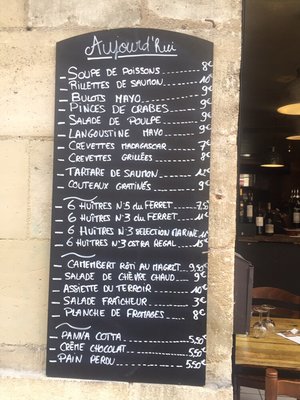 Aujourd'hui
- Soupe de poissons ---- 8€
- Rillettes de saumon --- 10€
- Bulots mayo ---- 9€
- Pinces de crabes ---- 9€
- Salade de poulpe ---- 9€
- Langoustine mayo ---- 9€
- Crevettes madagascar --- 7€
- Crevettes grillées ---- 8€
- Tartare de saumon ---
- Couteaux gratinés ---- 9€
- 6 huîtres N°5 du Ferret ---
- 6 huîtres N°3 du Ferret ---
- 6 huîtres N°3 selection marine
- 6 huîtres N°3 ostra regal --- 15€
- Camembert rôti au magret 9,50€
- Salade de chèvre chaud --- 9€
- Assiette du terroir ---- 10€
- Salade fraîcheur ---- 3€
- Planche de fromages ---- 8€
- Panna cotta ---- 5,50€
- Crème chocolat ---- 5,50€
- Pain perdu ---- 5,50€